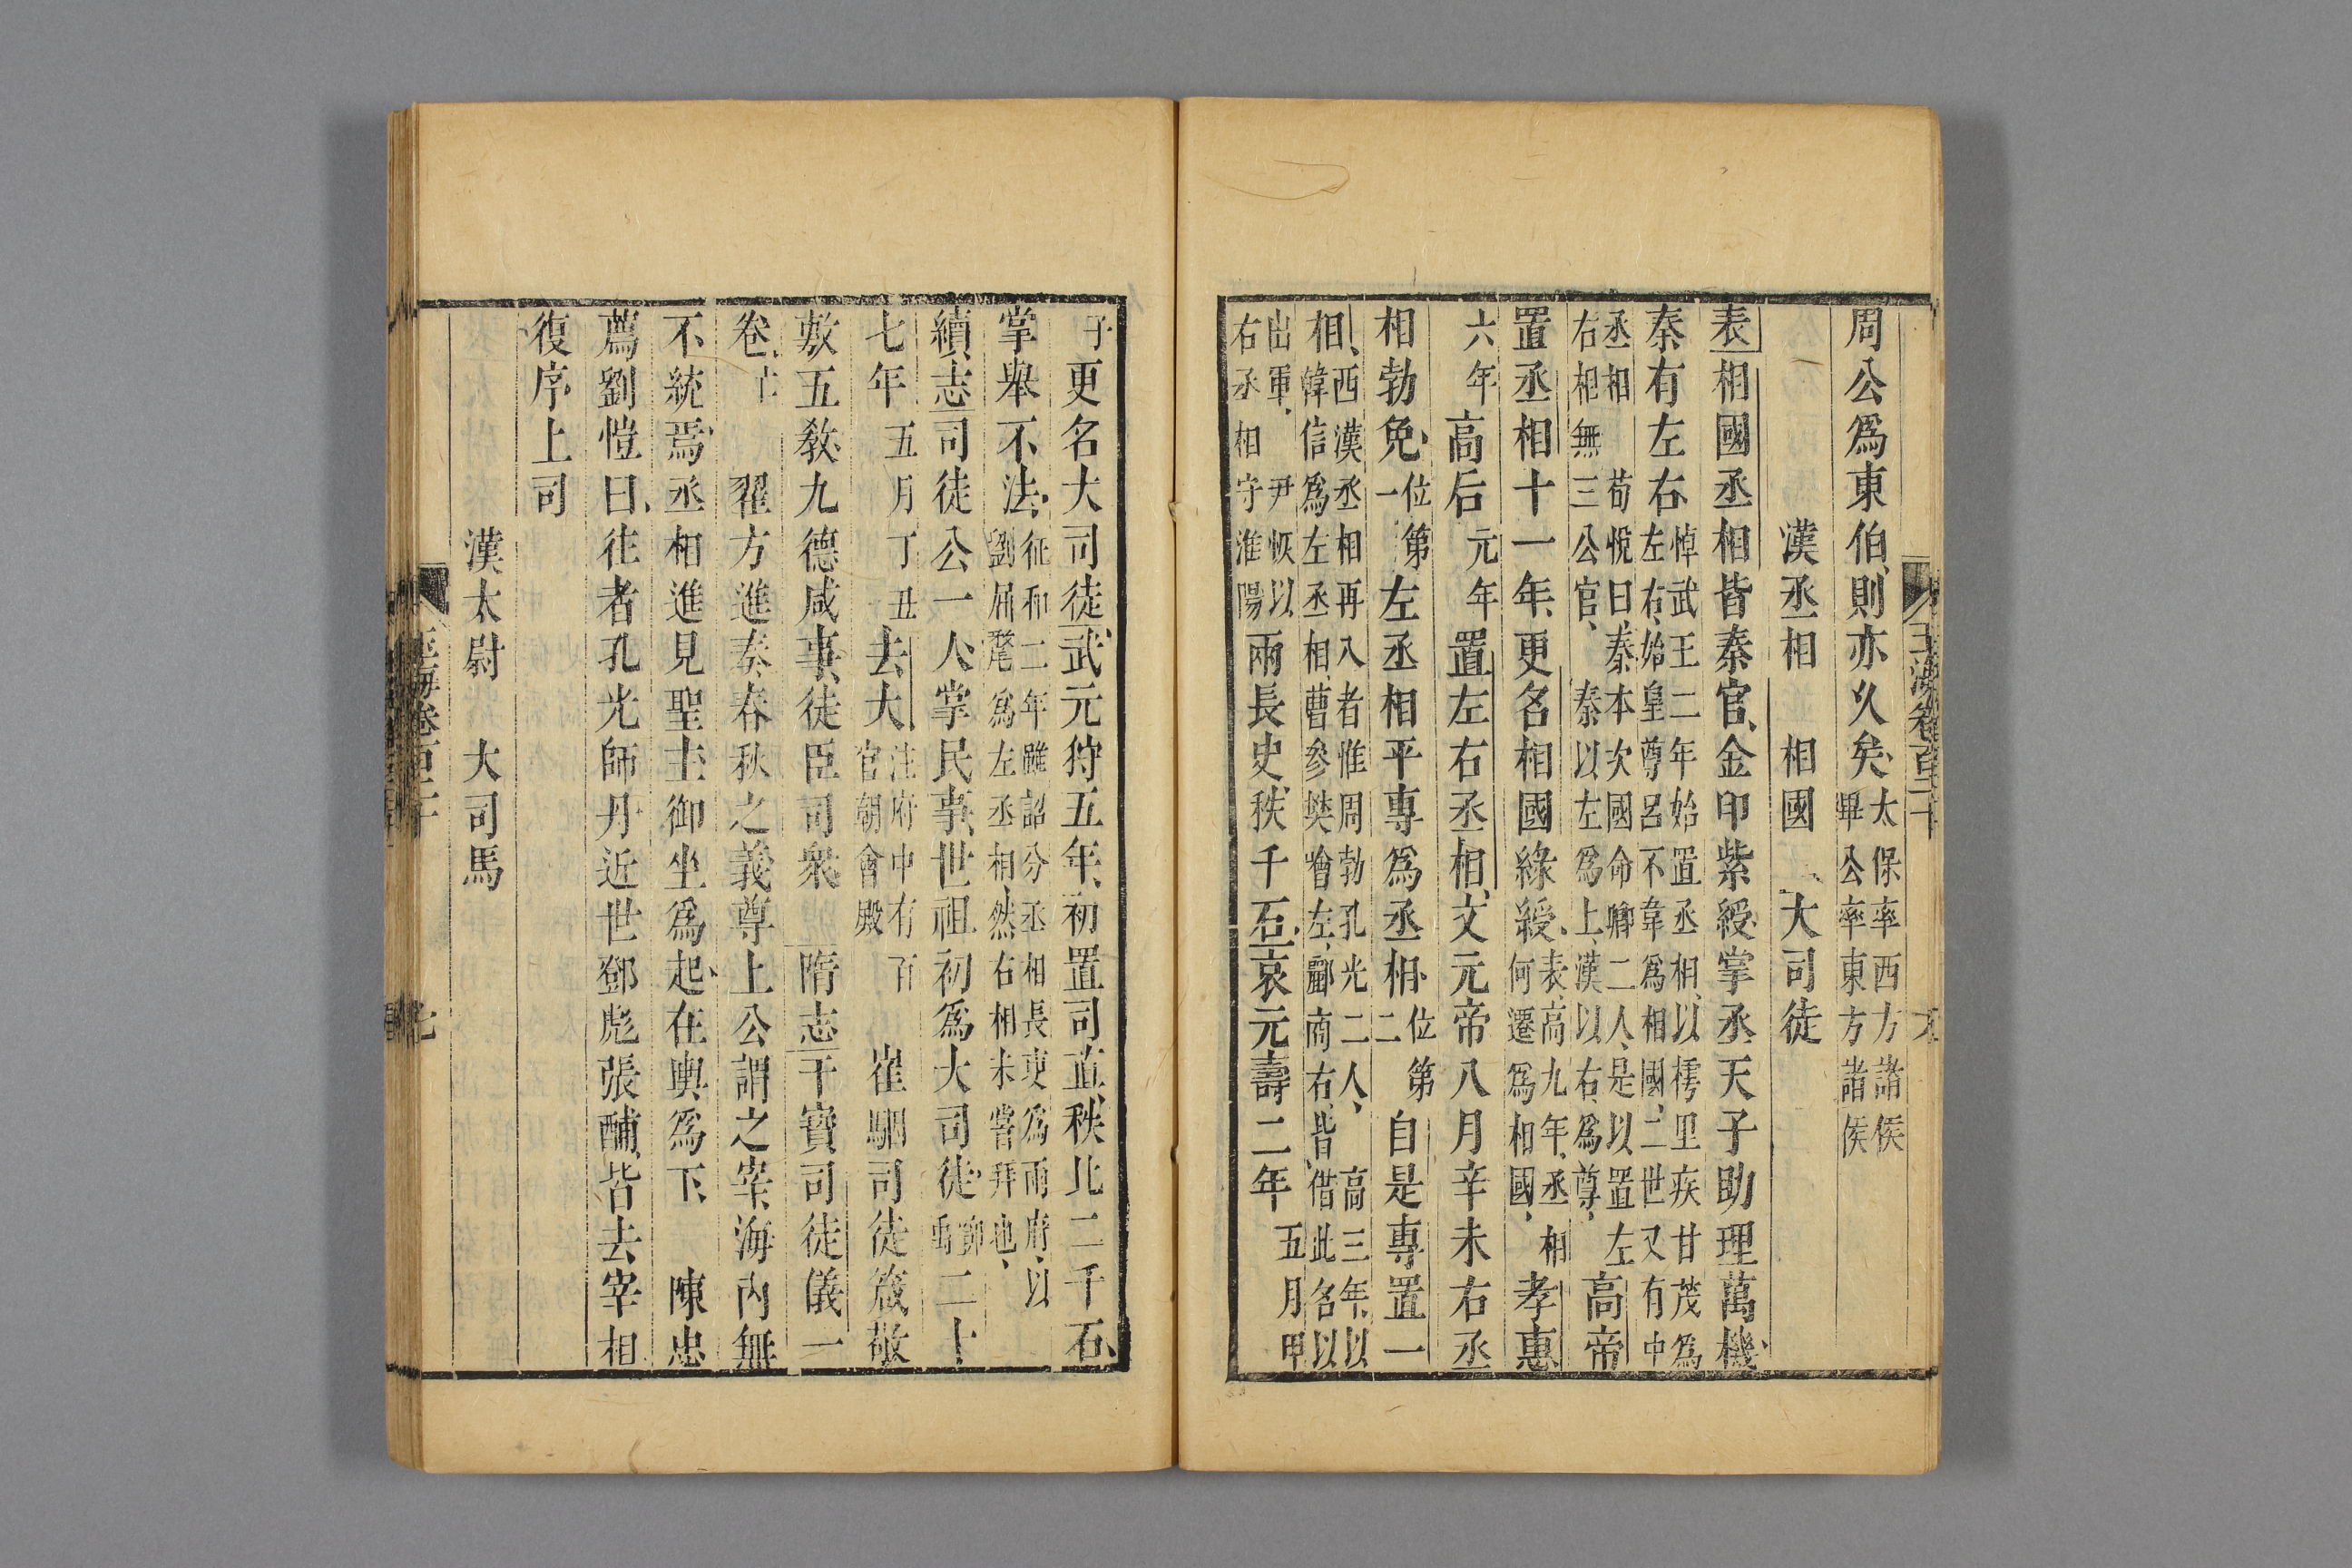 玉海卷百二十
周公爲東伯則亦久矣太保率西方諸侯畢公率東方諸侯
漢丞相 相國 大司徒
表相國丞相皆秦官金印紫綬掌丞天子助理萬機
秦有左右悼武王二年始置丞相以樗里疾甘茂爲左右始皇尊呂不韋爲相國二世又有中
丞相荀悅曰秦本次國命卿二人是以置左右相無三公官秦以左爲上漢以右爲尊高帝
置丞相十一年更名相國綠綬表高九年丞相何遷爲相國孝惠
六年高后元年置左右丞相文元帝八月辛未右丞
相勃免位第一左丞相平專爲丞相位第二自是專置一
相西漢丞相再入者惟周勃孔光二人高三年以韓信爲左丞相曹參樊噲左酈商右皆借此名以
出軍尹恢以右丞相守淮陽兩長史秩千石哀元壽二年五月甲
子更名大司徒武元狩五年初置司直秩比二千石
掌舉不法征和二年詔分丞相長史爲兩府以劉屈氂爲左丞相然右相未嘗拜也
續志司徒公一人掌民事世祖初爲大司徒鄧禹二十
七年五月丁丑去大注府中有百官朝會殿崔駰司徒箴敬
敷五教九德咸事徒臣司衆隋志干寶司徒儀一
卷 翟方進奏春秋之義尊上公謂之宰海內無
不統焉丞相進見聖主御坐爲起在輿爲下 陳忠
薦劉愷曰往者孔光師丹近世鄧彪張酺皆去宰相
復序上司
漢太尉 大司馬
玉海卷百二十 七